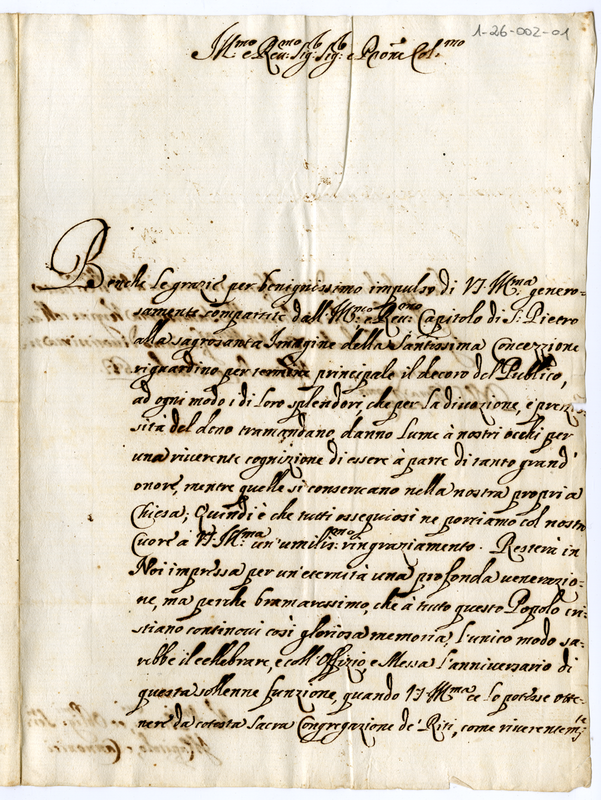 1-26-002-01
Ill:mo e Rev:mo Sig:r Sig:r e Prone Col:mo
Benche le grazie per benignissimo impulso di V.S. Ill:ma genero-
samente compartite dall'Ill:mo e Rev:mo Capitolo di S. Pietro
alla sagrosanta Imagine della Santissima Concezzione
riguardino per termine principale il decoro del Publico,
ad ogni modo i di loro splendori, che per la divozione, e prezio-
sità del dono tramandano, danno lume à nostri occhi per
una riverente cognizione di essere à parte di tanto grand'
onore, mentre quelle si conservano nella nostra propria
Chiesa; Quindi è che tutti ossequiosi ne porriamo col nostro
Cuore a V.S. Ill:ma un'umiliss:mo ringraziamento. Resterà in
Noi impressa per un'eternità una profonda venerazio-
ne, ma perche bramaressimo, che à tutto questo Popolo cri-
stiano continovi così gloriosa memoria, l'unico modo sa-
rebbe il cellebrare, e coll'Offizio, e Messa l'anniversario di
questa sollenne funzione, quando V.S. Ill:ma ce lo potesse otte-
nere da cotesta Sacra Congregazione de' Riti, come riverentem:te